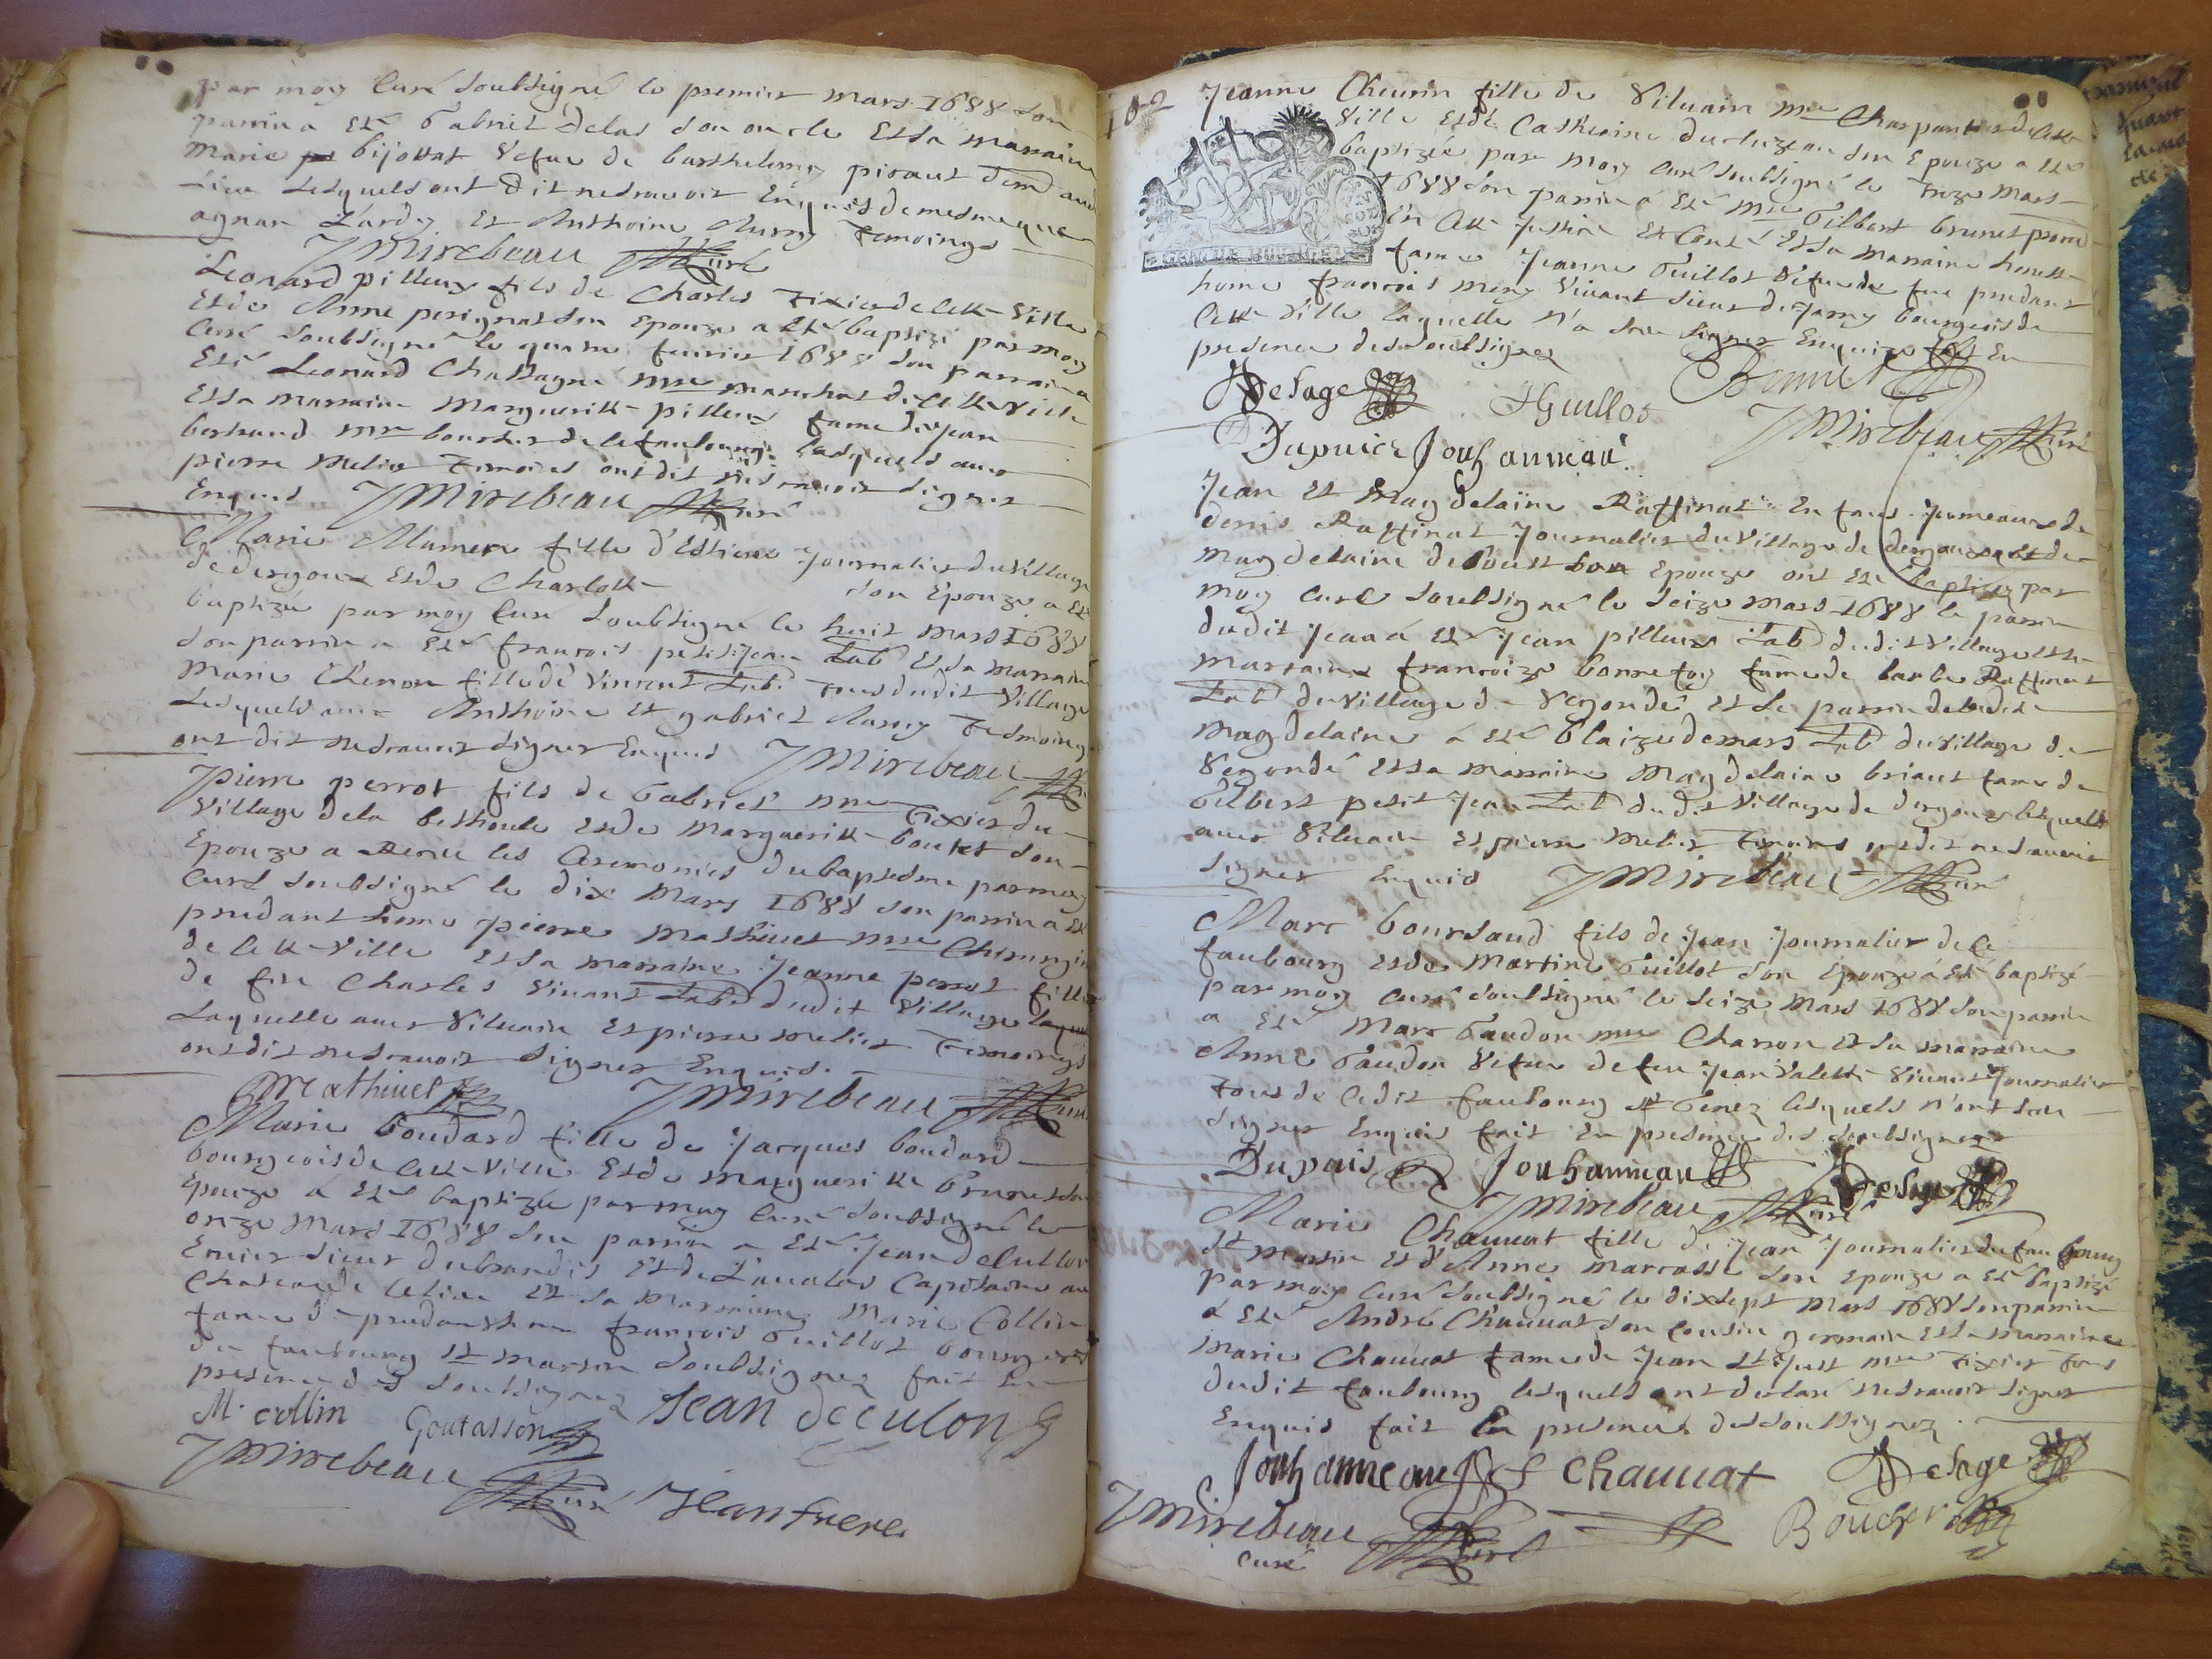 par moy Curé soubsigné le premier mars 1688 son
parrin a esté Gabriel delas son oncle et sa marraine
Marie bijottat vefue de barthelemy piraut
lesquels ont dit ne scauoir Enquis de mesme que
agnan Lardy et Anthoine Auroy temoings
JMirebeau Curé
Leonard pilleux fils de Charles tixier de cette ville
et de Anne perignat son Epouze a esté baptizé par moy
Curé soubsigné le quatre feurier 1688 son parrain a
esté Leonard Chastagné mre mareschal de cette ville
et sa marraine Marguerite pilleux fame de Jean
bertrand mre de ce faubourg lesquels auec
pierre melier temoins ont dit ne scauoir signer
Enquis JMirebeau Curé
Marie Mamere fille d'Estiene Journalier du village
de dergoux et de Charlotte son Epouze a esté
baptizée par moy Curé soubsigné le huit mars 1688
son parrin a esté francois petitjean Lab. et sa marraine
Marie Chenon fille de Vincent Lab. tous dudit village
lesquels auec Anthoine et gabriel Auroy tesmoings
ont dit ne scauoir signer Enquis JMirebeau
Pierre perrot fils de Gabriel mre tixier du
village de la bethoule et de Marguerite boutet son
Epouze a Receu les Ceremonies du baptesme par moy
Curé soubsigné le dix Mars 1688 son parrin a esté
prudent home pierre Mathiuet mre Chirurgien
de cette ville et sa marraine Jeanne perrot fille
de feu Charles viuant Lab. dudit village
Laquelle auec Siluain et pierre melier temoings
ont dit ne scauoir signer Enquis.
Mathiuet JMirebeau Curé
Marie boudard fille de Jacques boudard
bourgeois de cette ville et de Marguerite brunet son
Epouze a esté baptizée par moy Curé soubsigné le
onze Mars 1688 son parrin a esté Jean de Cullon
Ecuier sieur du brandis et de Capitaine au
Chateau de et sa Marraine Marie Collin
fame de prudent home francois Guillot bourgeois
du faubourg st martin soubsignez fait en
presence des soubsignez
M. collin Goutasson Jean deculon
JMirebeau Curé Jean frere
102 Jeanne Cheurin fille de Siluain mre Charpantier de cette
ville et de Catherine ducluzeau son Epouze a esté
baptizée par moy Curé soubsigné le treze Mars
1688 son parrin a esté mre Gilbert brunet
en cette Justice et Conté et sa marraine honeste
fame Jeanne Guillot vefue de feu prudent
home francois mery viuant sieur de Jarry bourgeois de
cette ville laquelle n'a sceu signer Enquize En
presence des soubsignez
GEN DE BOURGES
Desage JGuillot Brunet
Dupuiez Jouhanneau JMirebeau Curé
Jean et Magdelaine Raffinat Enfans Jumeaux de
denis Raffinat Journalier du village de dergoux et de
Magdelaine de son Epouze ont esté baptizez par
moy Curé soubsigné le seize mars 1688 le parrin
dudit Jean a esté Jean pilleux Lab dudit village et la
marraine francoize bonnefoy fame de barbe Raffinat
Lab du village de Vegondé et le parrin de ladite
Magdelaine a esté blaize demars Lab du village de
Vegondé et sa marraine Magdelaine briaut fame de
Gilbert petit Jean Lab dudit village de dergoux lesquels
auec Siluain et pierre Melier temoins ont dit ne scauoir
signer Enquis JMirebeau Curé
Marc boursaud fils de Jean Journalier de ce
faubourg et de Martine Guillot son Epouze a esté baptizé
par moy Curé soubsigné le seize Mars 1688 son parrin
a esté Marc Gaudon mre Charron et sa marraine
Anne Gaudon vefue de feu Jean Valette viuant Journalier
tous de cedit faubourg st Genez lesquels n'ont sceu
signer Enquis fait En presence des soubsignez
Dupuis Jouhanneau Desage
JMirebeau Curé
Marie Chauuat fille de Jean Journalier du faubourg
St Martin et d'Anne Marcasse son Epouze a esté baptizé
par moy Curé soubsigné le dixsept Mars 1688 son parrin
a esté André Chauuat son Cousin germain et sa marraine
Marie Chauuat fame de Jean St Just mre tixier tous
dudit faubourg lesquels ont declaré ne scauoir signer
Enquis fait En presence des soubsignez.
Jouhanneau f Chauuat Desage
JMirebeau Boucher
curé